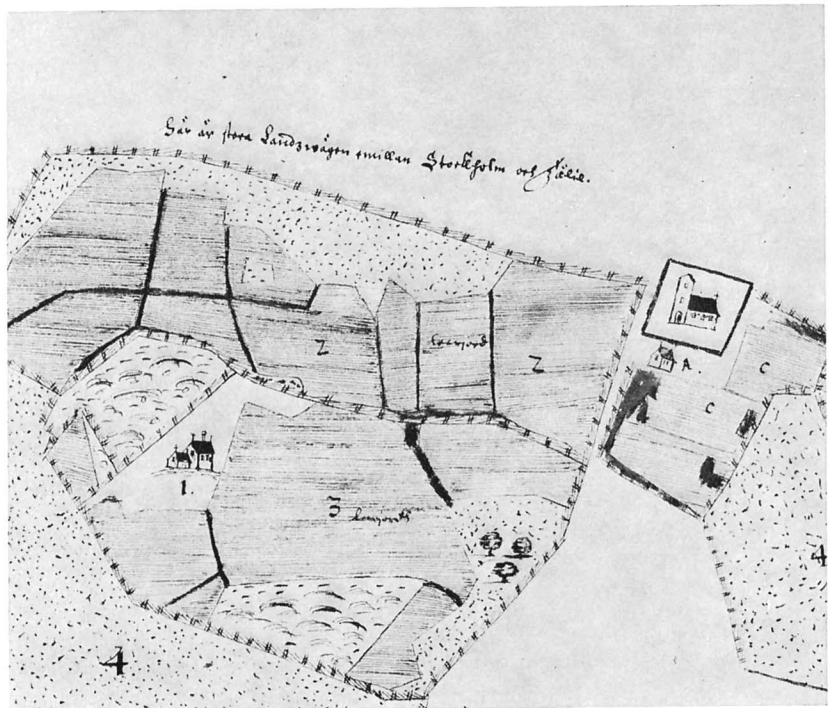 Här är stora Landzwägen emillan Stockholm och
2
Leerjord
2
A
C
C
1.
3 Leerjordh
4
4